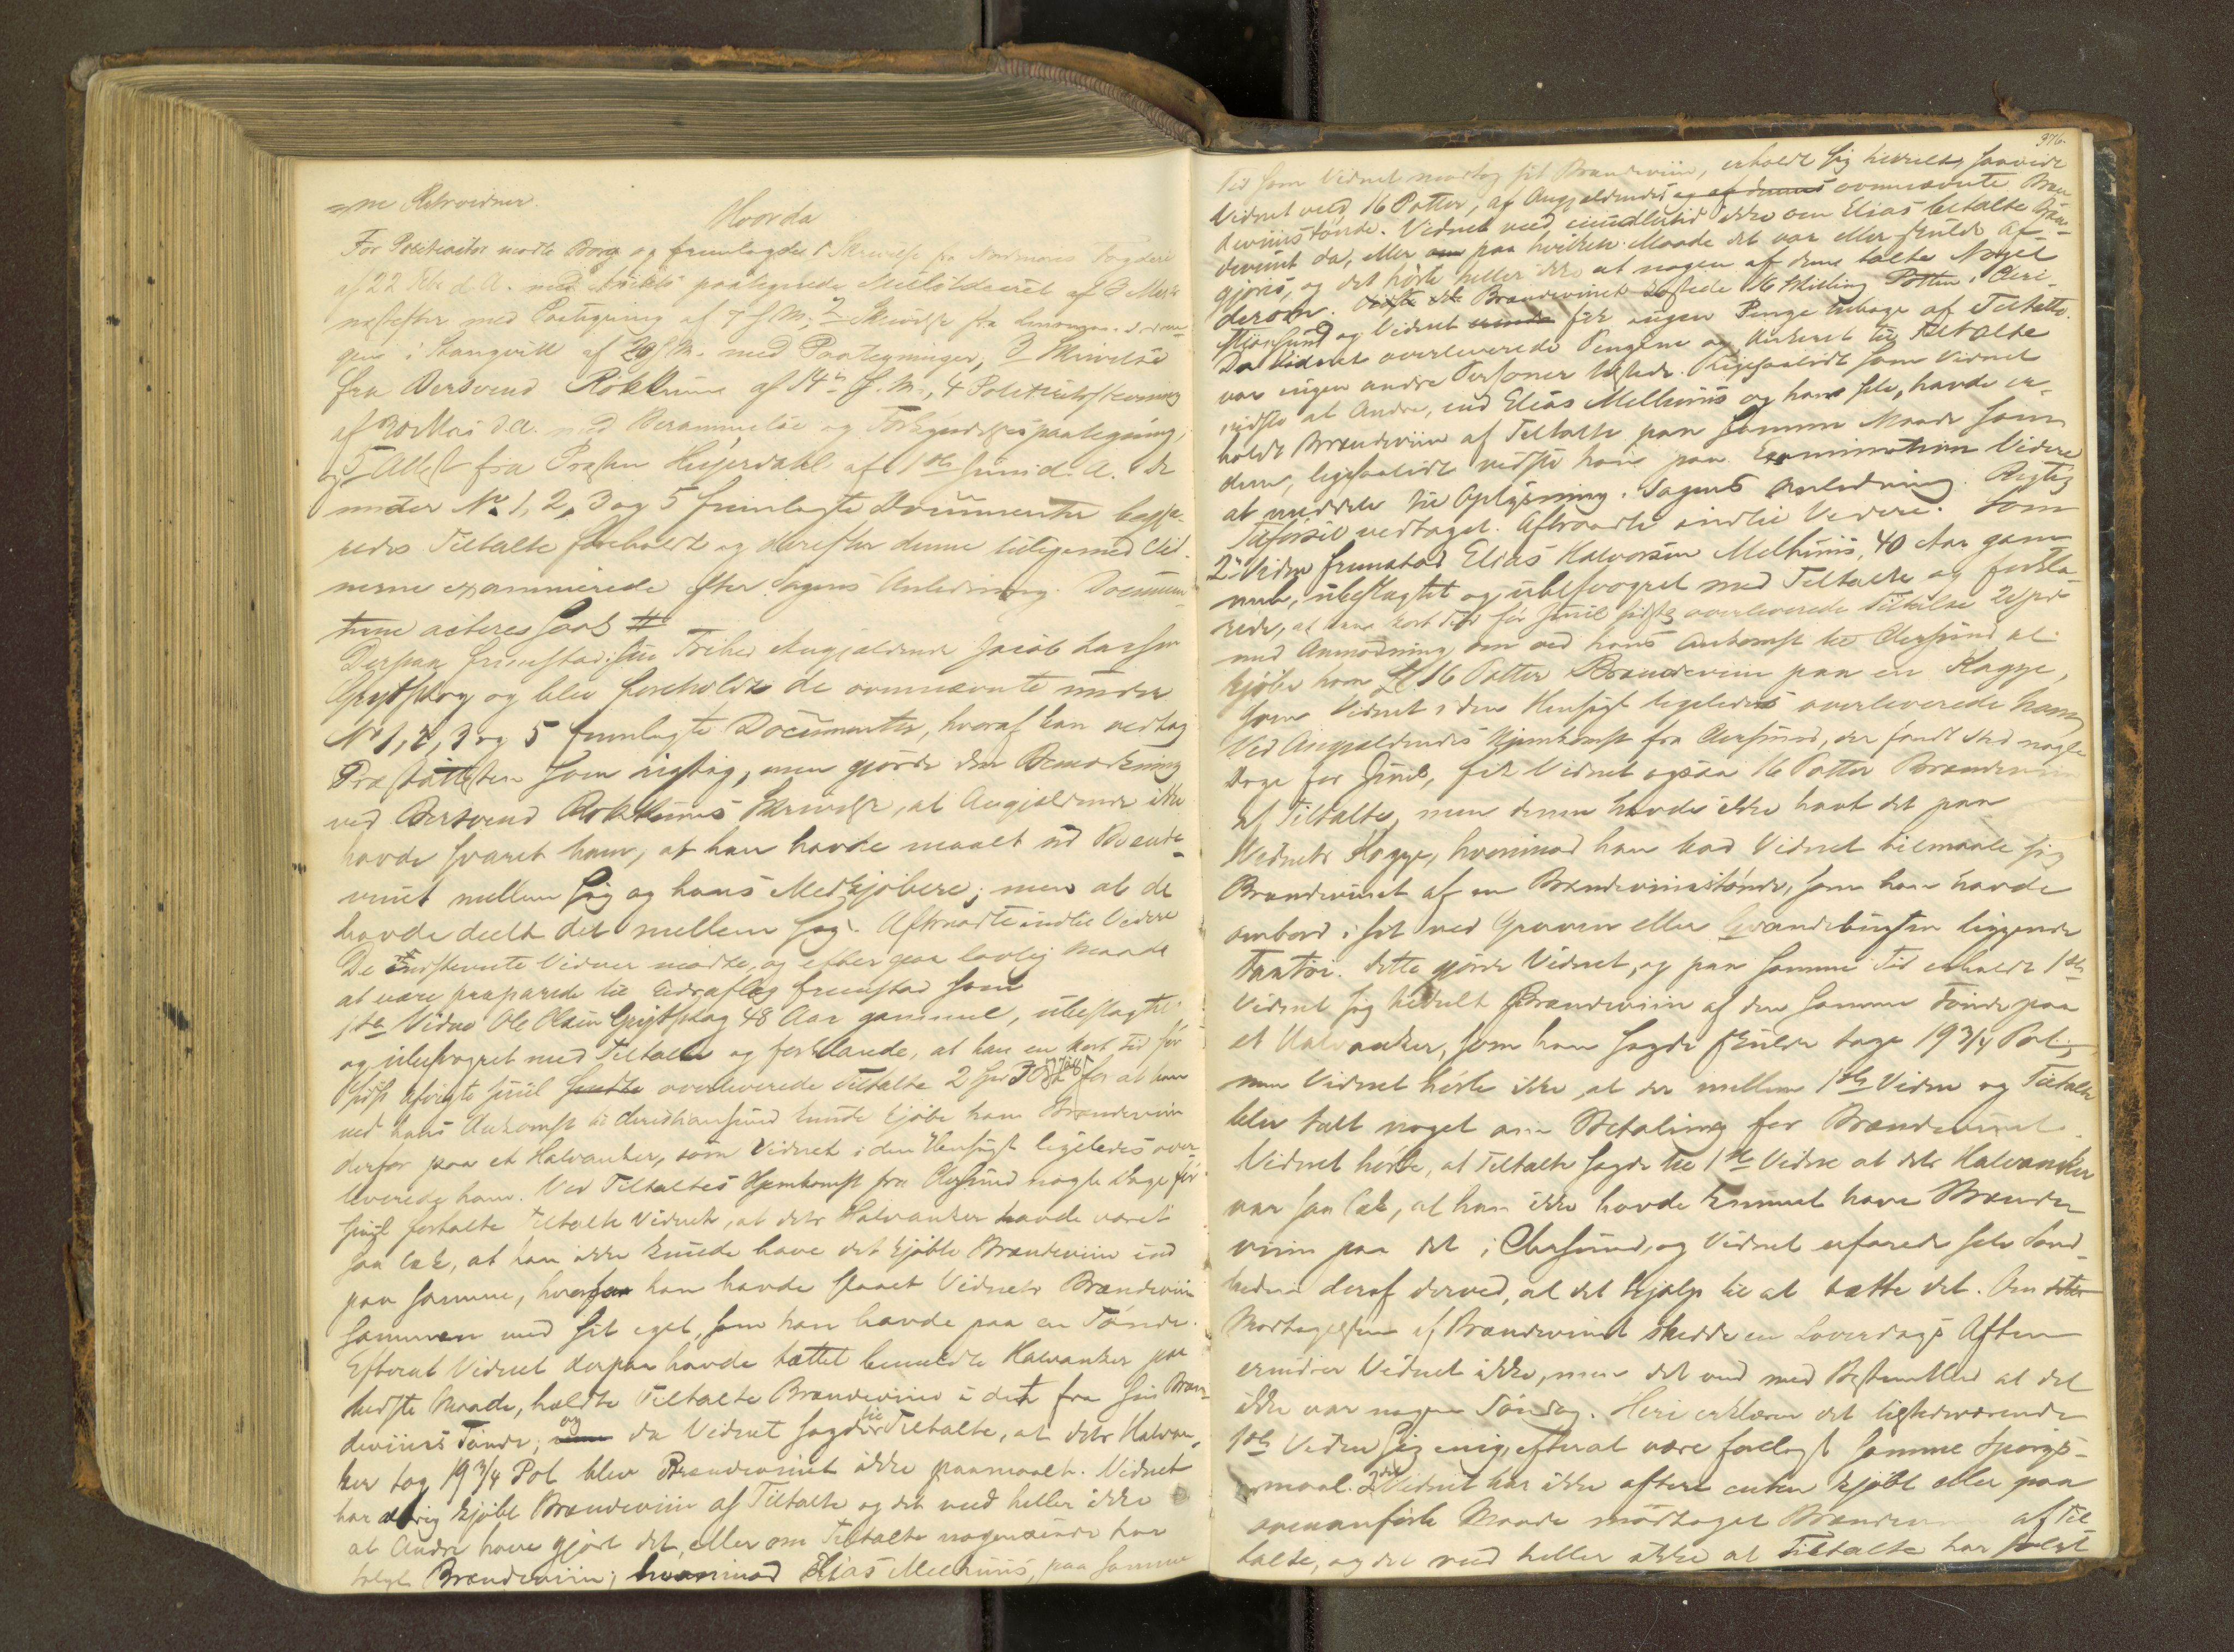 =ne Retsvidner.
Hvorda
For Politiactor mødte Borg og fremlagde 1 Skrivelse fra Nordmøres Fogderi
af 22 Febr d. A. med Amtets paategnede af 3 Marts
næstefter med Paategning af 7 f. M.; 2 Skrivelse fra
i Stangvik af 20 f. M. med Paategninger, 3 Skrivelse
fra Bersvend Rokkum af 14de f. M., 4 Politiudstevning
af Mai d. A. med Berammelse og Forkyndelsespaategning,
og 5 Attest fra Præsten af 1ste Juni d. A. De
under No 1, 2, 3 og 5 fremlagte Documenter begje-
redes Tiltalte foreholdt og derefter denne tilligemed Vid-
nerne examinerede efter Sagens Anledning. Documen-
terne acteres saal. #
Derpaa fremstod sin Frihed Angjældende Jacob Larsen
og blev foreholdt de ovennævnte under
No 1, 2, 3 og 5 fremlagte Documenter, hvoraf han vedtog
Præsteattesten som rigtig, men gjorde den Bemærkning
ved Bersvend Rokkums Skrivelse, at Angjældende ikke
havde svaret ham, at han havde maalt ud Brænde-
vinet mellem sig og hans Medkjøbere; men at de
havde deelt det mellem sig. Aftraadte indtil Videre
De indstevnte Vidner mødte, og efter paa lovlig Maade
at være præparede til Edsaflæg fremstod som
1ste Vidne Ole Olsen 48 Aar gammel, ubeslægtet
og ubesvogret med Tiltalte og forklarede, at han en kort Tid før
sidst afvigte Juul overleverede Tiltalte 2 for at han
ved hans Ankomst til Christiansund kunde kjøbe ham Brændeviin
derfor paa et Halvanker, som Vidnet i den Hensigt ligeledes over-
leverede ham. Ved Tiltaltes Hjemkomst fra Chrsund nogle Dage før
Juul fortalte Tiltalte Vidnet, at dets Halvanker havde været
saa læk, at han ikke kunde have det kjøbte Brændeviin ind
paa samme, hvorfor han havde slaaet Vidnets Brændeviin
sammen med sit eget, som han havde paa en Tønde.
Efterat Vidnet derpaa havde tættet bemeldte Halvanker paa
bedste Maade, hældte Tiltalte Brændeviin i det fra sin Bræn-
deviins Tønde; og da Vidnet sagde til Tiltalte, at dets Halvan-
ker tog 19 3/4 Pot blev Brændevinet ikke paamaalt. Vidnet
har aldrig kjøbt Brændeviin af Tiltalte og det veed heller ikke
at Andre have gjort det, eller om Tiltalte nogensinde har
solgt Brændeviin; hvorimod Elias Melhuus, paa samme
376.
Tid som Vidnet modtog sit Brændeviin, erholdt sig tilmaalt, saavidt
Vidnet veed 16 Potter, af Angjældendes og af dennes ovennævnte Bræn
deviinstønde. Vidnet veed imidlertid ikke om Elias betalte Bræn-
devinet da, eller om paa hvilken Maade det var eller skulde af-
gjøres, og det hørte heller ikke at nogen af dem talte Noget
derom. Brændevinet kostede 16 Skilling Potten i Chri-
stiansund og Vidnet fik ingen Penge tilbage af Tiltalte.
Da Vidnet overleverede Pengene og Ankeret til Tiltalte
var ingen andre Personer tilstede. Ligesaalidt som Vidnet
vidste at Andre, end Elias Melhuus og han selv, havde er-
holdt Brændeviin af Tiltalte paa samme Maade som
denne, ligesaalidt vidste han paa Examination Videre
at meddele til Oplysning i Sagens Anledning. Rigtig
Tilførsel vedtaget. Aftraadte indtil Videre. Som
2det Vidne fremstod Elias Halvorsen Melhuus, 40 Aar gam
mel, ubeslægtet og ubesvogret med Tiltalte og forkla-
rede, at han kort Tid før Juul sidst overleverede Tiltalte 2 Spd
med Anmodning om ved hans Ankomst til Chrsund at
kjøbe ham 16 Potter Brændeviin paa en Kagge,
som Vidnet i den Hensigt ligeledes overleverede ham
Ved Angjældendes Hjemkomst fra Chrsund, der fandt Sted nogle
Dage før Juul, fik Vidnet ogsaa 16 Potter Brændeviin
af Tiltalte, men denne havde ikke havt det paa
Vidnets Kagge, hvorimod han bad Vidnet tilmaale sig
Brændevinet af en Brændeviinstønde, som han havde
ombord i sit ved liggende
Fartøi. Dette gjorde Vidnet, og paa samme Tid erholdt 1ste
Vidnet sig tildeelt Brændeviin af den samme Tønde paa
et Halvanker, som han sagde skulde tage 19 3/4 Pot;
men Vidnet hørte ikke, at der mellem 1ste Vidne og Tiltalte
blev talt noget om Betaling for Brændevinet.
Vidnet hørte, at Tiltalte sagde til 1ste Vidne at dets Halvanker
var saa læk, at han ikke havde kunnet have Brænde-
viin paa det i Chrsund, og Vidnet erfarede selv Sand-
heden deraf derved, at det hjalp til at tætte det. Om
Modtagelsen af Brændevinet skedde en Løverdags Aften
erindrer Vidnet ikke, men det veed med Bestemthed at det
ikke var nogen Søndag. Heri erklærer det tilstedeværende
1ste Vidne sig enig, efterat være forelagt samme Spørgs-
maal. 2det Vidnet har ikke oftere enten kjøbt eller paa
ovenanførte Maade modtaget Brændeviin af Til
talte, og det veed heller ikke at Tiltalte har solgt